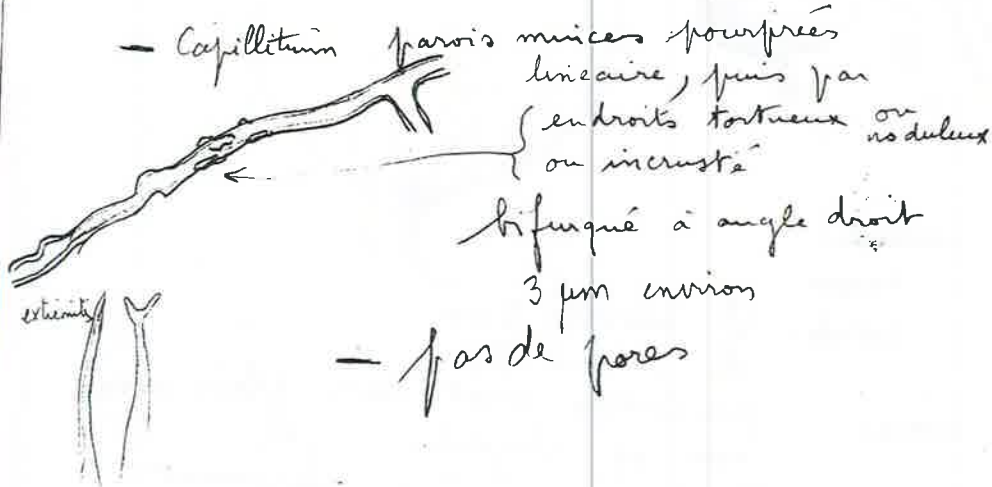 — Capillitium parois minces pourprées
linéaire, puis par
endroits tortueux ou noduleux
ou incrusté
bifurqué à angle droit
3 µm environ
extrémités
— pas de pores